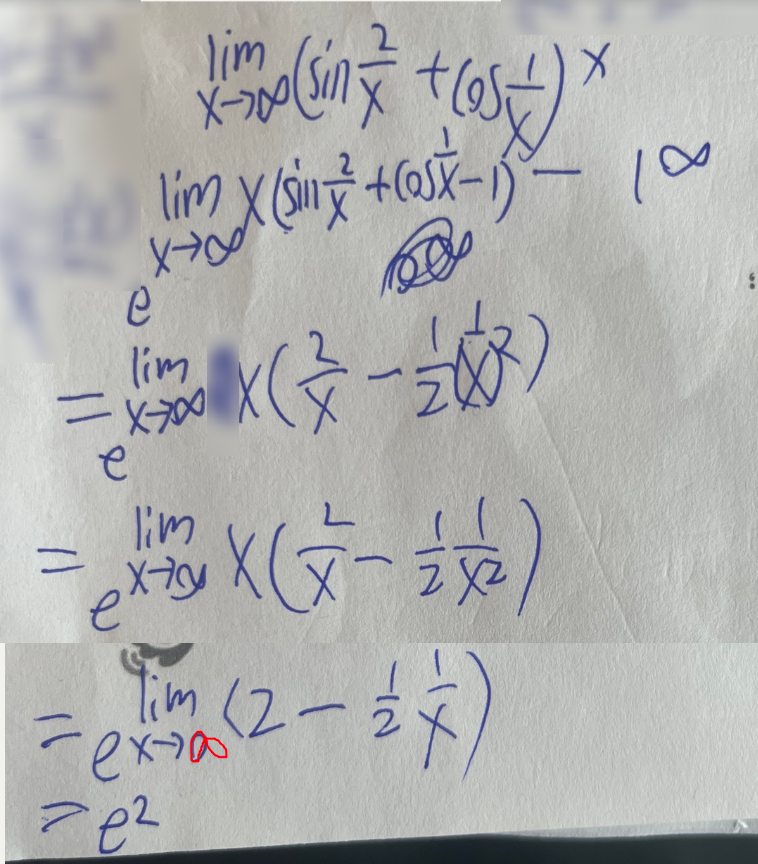 lim x→∞ (sin 2/x + cos 1/x)^x
e^{lim x→∞ x(sin 2/x + cos 1/x - 1)} — 1^∞
= e^{lim x→∞ x(2/x - 1/2 (1/x)^2)}
= e^{lim x→∞ x(2/x - 1/2 1/x^2)}
= e^{lim x→∞ (2 - 1/2 1/x)}
= e^2